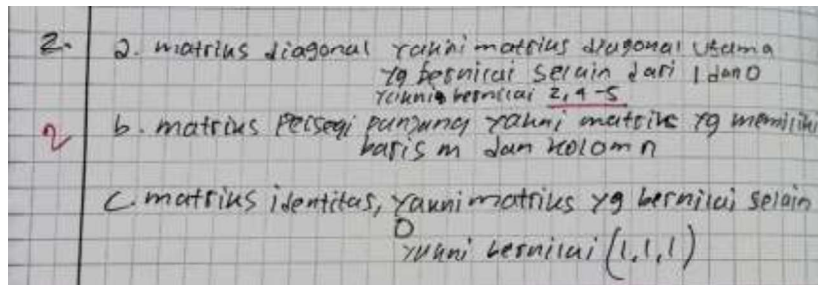 2. a. matriks diagonal yakni matriks diagonal utama
yg bernilai selain dari 1 dan 0
yakni bernilai 2, 4 -5
2 b. matriks persegi panjang yakni matriks yg memiliki
baris m dan kolom n
c. matriks identitas, yakni matriks yg bernilai selain
0
yakni bernilai (1,1,1)